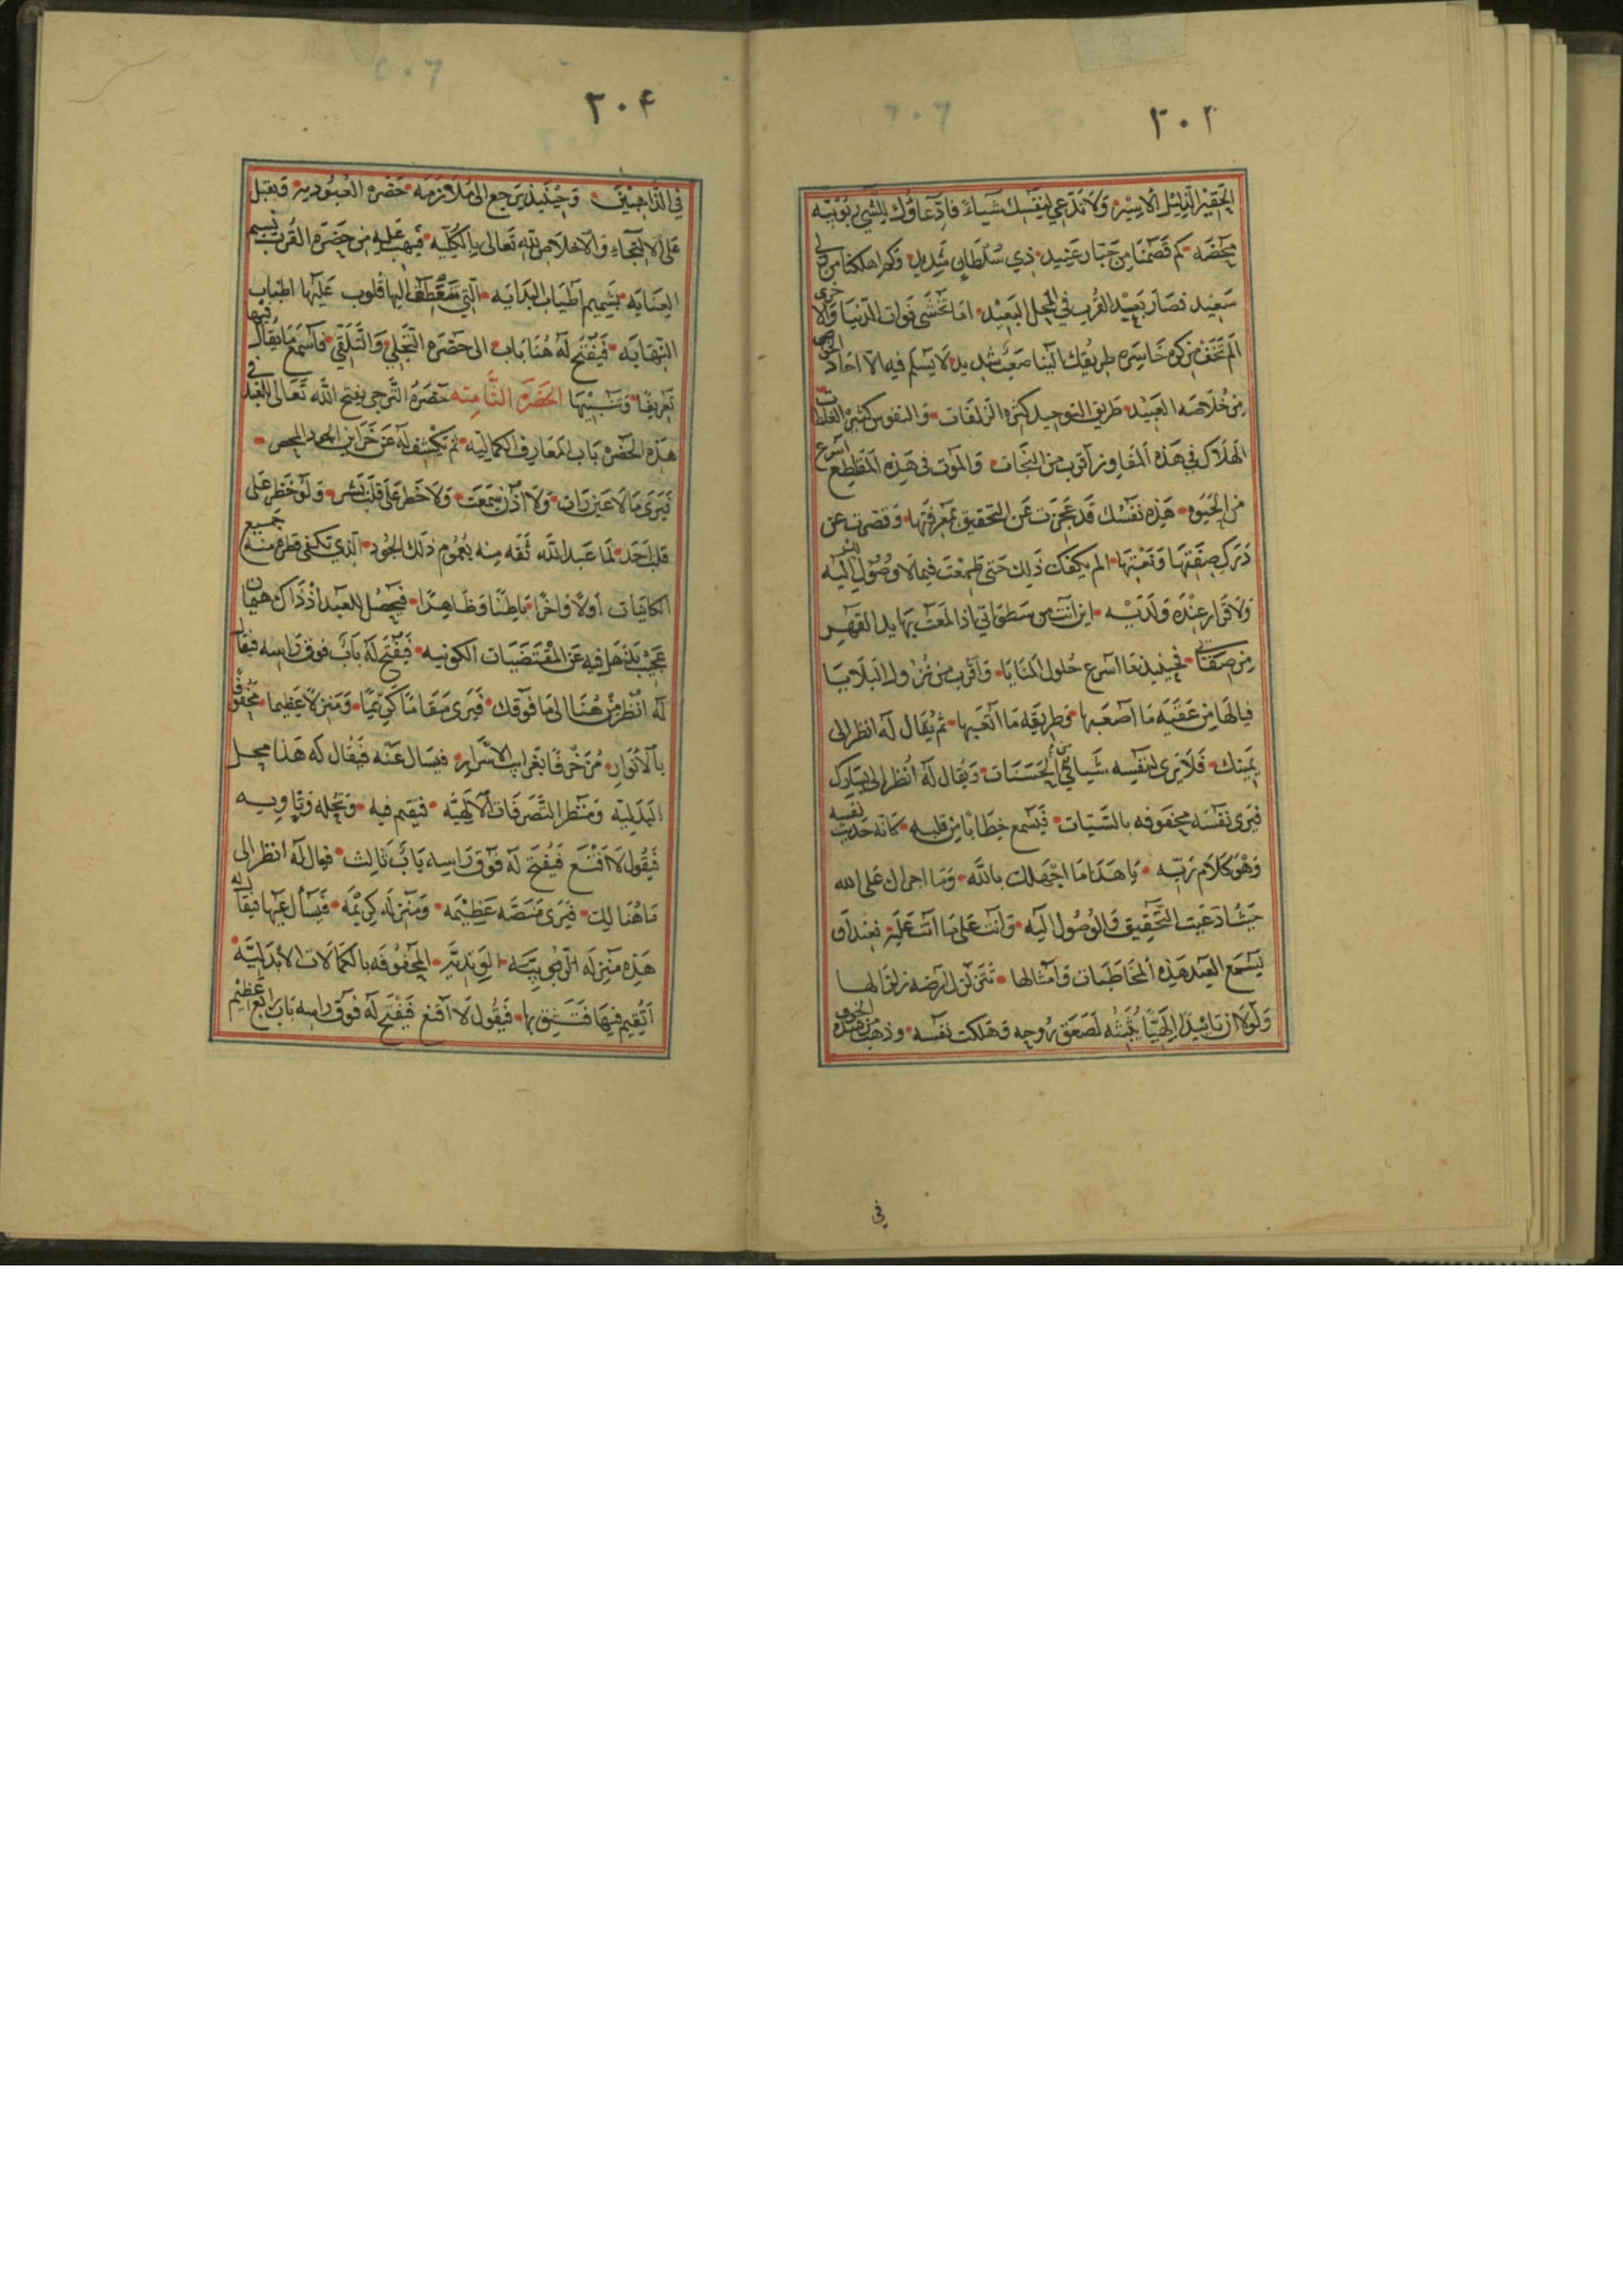 ٣٠٢
الحقير الذليل الاسير ولا تدعي لنفسك شياء فادعاؤك للشي ربوبيه
محضه كم قصمنا من جبار عنيد ذي سلطان شديد وكم اهلكنا من ولي
سعيد فصار بعيد القرب في المحل البعيد اما تخشى فوات الدنيا والاخرى
الم تخف من كره خاسره طريقك الينا صعب شديد لا يسلم فيه الا احاد الخواص
من خلاصه العبيد طريق التوحيد كثره الزلقات والنفوس كثير الغلطات
الهلاك في هذه المفاوز اقرب من النجات والموت في هذه المقاطع اسرع
من الحيوه هذه نفسك قد عجزت عن التحقيق بمعرفتها وقصرت عن
درك صفتها ونعتها الم يكفك ذلك حتى طمعت فيما لا وصول اليه
ولا قرار عنده ولديه اين انت من سطوتي اذا لمعت بها يد القهر
من صفتي فحينئذ ما اسرع حلول المنايا واقرب من نزول البلايا
فيالها من عقبه ما اصعبها وطريقه ما اتعبها ثم يقال له انظر الى
يمينك فلا يرى لنفسه شياء من الحسنات ويقال له انظر الى يسارك
فيرى نفسه محفوفه بالسيات فيسمع خطابا من قلبه كانه حديث نفسه
وهو كلام ربه يا هذا ما اجهلك بالله وما اجراك على الله
حيث ادعيت التحقيق والوصول اليه وانت على ما انت عليه فعند ان
يسمع العبد هذه المخاطبات وامثالها تتزلزل ارضه زلزالها
ولولا ان تائيدا الهيا يثبته لصعق روحه وهلكت نفسه وذهب من هذه الخوف
في
٣٠۴
في الذاهبين وحينئذ يرجع الى ملازمه حضره العبوديه ويقبل
على الالتجاء والاخلاص لله تعالى بالكليه فيهب عليه من حضره القرب نسيم
العنايه بشميم اطياب البدايه التي تتعطف اليها قلوب عليها اطياب
النهايه فيفتح له هنا باب الى حضره التجلي والتلقي فاسمع ما يقال فيها
تعريفا وتنبيها الحضره الثامنه حضره الترجي يفتح الله تعالى للعبد في
هذه الحضره باب المعارف الكماليه ثم يكشف له عن خزاين الجود المحض
فيرى ما لا عين رات ولا اذن سمعت ولا خطر على قلب بشر ولو خطر على
قلب احد لما عبد الله ثقه منه بعموم ذلك الجود الذي تكفي قطره منه جميع
الكاينات اولا واخرا باطنا وظاهرا فيحصل للعبد اذ ذاك هيمان
عجيب يذهل فيه عن المقتضيات الكونيه فيفتح له باب فوق راسه فيقال
له انظر من هنا الى ما فوقك فيرى مقاما كريما ومنزلا عظيما محفوفا
بالانوار مزخرفا بغرايب الاسرار فيسال عنه فيقال له هذا محل
البدليه ومنظر التصرفات الالهيه فتقيم فيه وتحله وتاويه
فيقول لا اقنع فيفتح له فوق راسه باب ثالث فيقال له انظر الى
ما هنالك فيرى منصه عظيمه ومنزله كريمه فيسأل عنها فيقال له
هذه منزله المحفوفه بالكمالات الابدليه
اتقيم فيها فتشق بها فيقول لا اقنع فيفتح له فوق راسه باب رابع عظيم